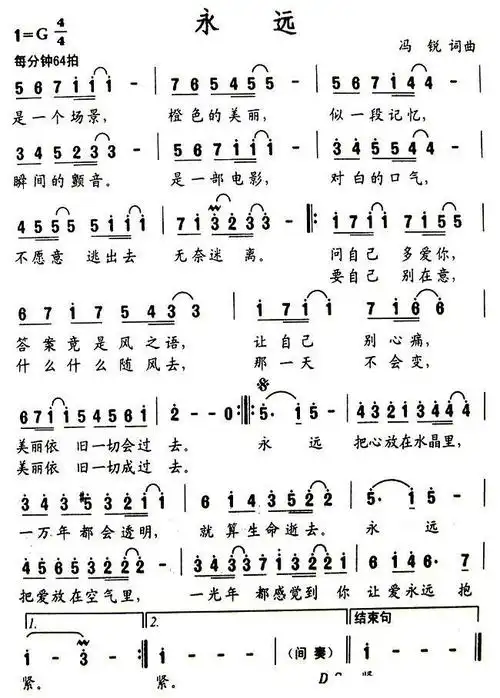 永 远
1=G 4/4
冯 锐 词曲
每分钟64拍
5 6 7 1 1 1 - | 7 6 5 4 5 5 - | 5 6 7 1 1 1 - |
是一个场景, 橙色的美丽, 似一段记忆,
3 4 5 2 3 3 - | 5 6 7 1 1 1 - | 3 4 5 5 4 4 - |
瞬间的颤音。 是一部电影, 对白的口气,
4 5 5 5 5 1 1 2 2 | 7 1 3 2 3 3 - :1 7 1 1 7 1 5 5
不愿意 逃出去 无奈迷 离。 问自己 多爱你,
要自己 别在意,
6 7 1 7 5 4 3 3 | 1 7 1 1 7 1 6 6
答案竟是风之语, 让自己 别心痛,
什么什么随风去, 那一天 不会变,
6 7 1 1 5 4 5 6 1 | 2 - - 0 :5· 1 5 - | 4 3 2 1 3 4 4 -
美丽依 旧一切会过 去。 永 远 把心放在水晶里,
美丽依 旧一切成过 去。
3 4 3 #5 3 2 1 1 | 6 1 4 3 5 2 2 - | 5· 1 5 -
一万年都会透明, 就算生命逝去。 永 远
4 5 6 5 3 2 2 - | 3 4 3 7 1 1 3 2 1 | 6 1 4 6· 7
把爱放在空气里, 一光年 都感觉到 你 让爱永远 抱
1. 2. 结束句
1 - 3 - :1 - - - | (间 奏) 1 - - -
紧。 紧。 D